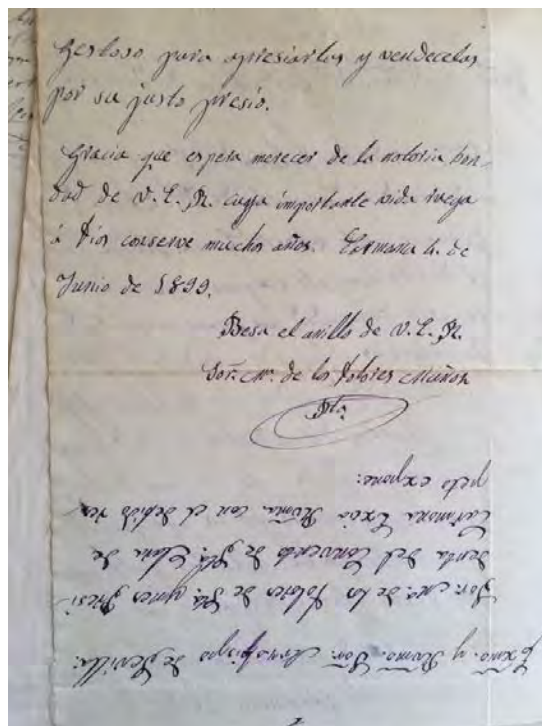 Gestoso para apresiarlas y vendecelas
por su justo presio.
Gracia que espera merecer de la notoria bon-
dad de V. E. R. cuya importante vida ruega
á Dios conserve muchos años. Carmona 4. de
Junio de 1899.
Besa el anillo de V. E. R.
Sor. Mª. de los Dolores Muñoz
Pta
Exmo. y Rvmo. Sor. Arzobispo de Sevilla:
Sor. Mª. de los Dolores de Sta. Ynes Presi-
denta del Convento de Sta. Clara de
Carmona Excia Rvma. con el debido res-
peto expone: